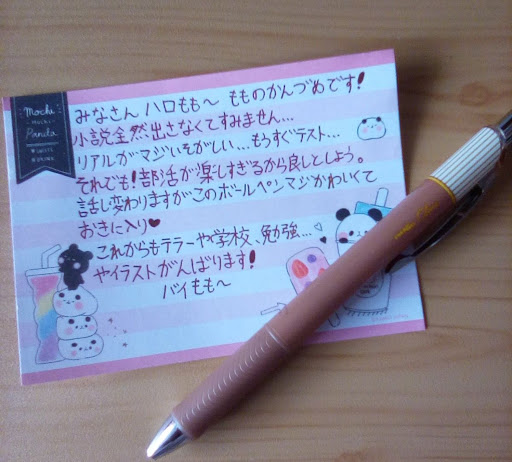 Mochi
Mochi
Panda
みなさん ハロもも〜 もものかんづめです!
小説全然出さなくてすみません...
リアルがマジいそがしい...もうすぐテスト...
それでも!部活が楽しすぎるから良しとしよう。
話し変わりますがこのボールペンマジかわいくて
おきに入り♥
これからもテラーや学校、勉強...
やイラストがんばります!
バイもも〜